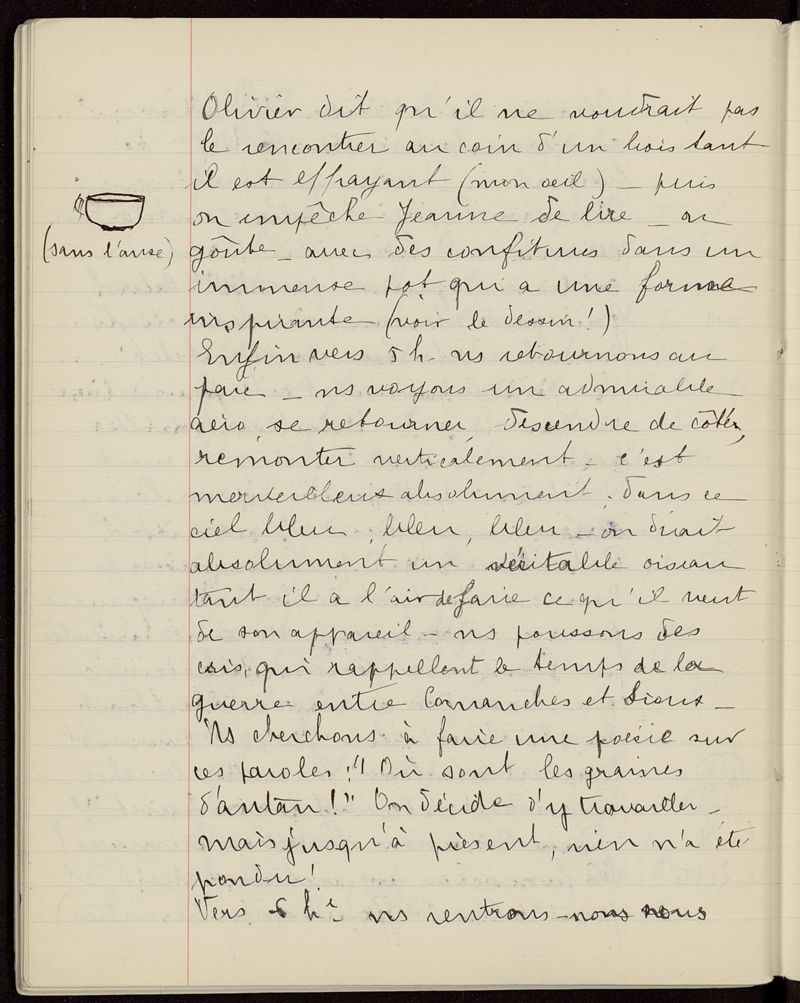 Olivier dit qu'il ne voudrait pas
le rencontrer au coin d'un bois tant
il est effrayant (mon œil) _ puis
on empêche Jeanne de lire _ on
(sans l'anse)
goûte _ avec des confitures dans un
immense pot qui a une forme
inspirante (voir le dessin!)
Enfin vers 5 h. ns retournons au
parc _ ns voyons un admirable
aéro, se retourner, descendre de côté,
remonter verticalement _ c'est
merveilleux absolument, dans ce
ciel bleu, bleu, bleu _ on dirait
absolument un véritable oiseau
tant il a l'air de faire ce qu'il veut
de son appareil _ ns poussons des
cris, qui rappellent le temps de la
guerre entre Comanches et Sioux _
Ns cherchons à faire une poésie sur
ces paroles : "Où sont les graines
d'antan!" On décide d'y travailler _
mais jusqu'à présent, rien n'a été
pondu!
Vers 6 h ns rentrons _ nous nous